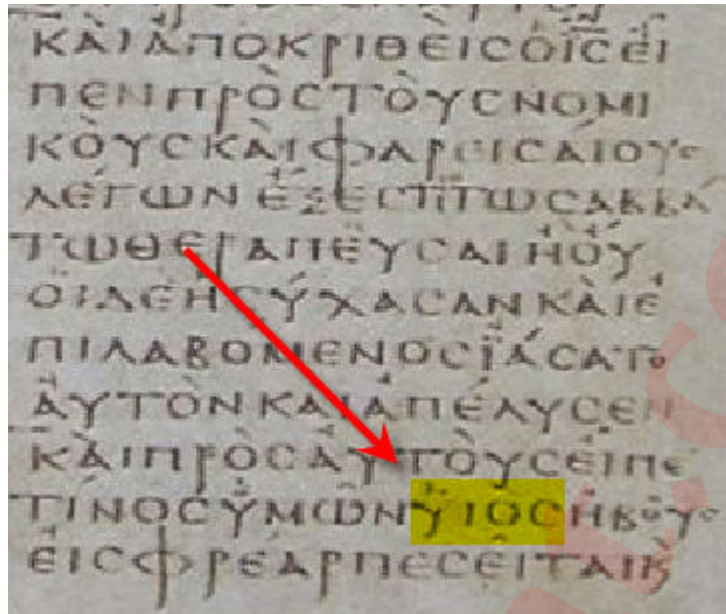 ΚΑΙΑΠΟΚΡΙΘΕΙϹΟΙ̅Ϲ̅ΕΙ
ΠΕΝΠΡΟϹΤΟΥϹΝΟΜΙ
ΚΟΥϹΚΑΙΦΑΡΕΙϹΑΙΟΥϹ
ΛΕΓΩΝΕΞΕϹΤΙΤΩϹΑΒΒΑ
ΤΩΘΕΡΑΠΕΥϹΑΙΗΟΥ
ΟΙΔΕΗϹΥΧΑϹΑΝΚΑΙΕ
ΠΙΛΑΒΟΜΕΝΟϹΪΑϹΑΤΟ
ΑΥΤΟΝΚΑΙΑΠΕΛΥϹΕΝ
ΚΑΙΠΡΟϹΑΥΤΟΥϹΕΙΠΕ
ΤΙΝΟϹΥΜΩΝΥΙΟϹΗΒΟΥϹ
ΕΙϹΦΡΕΑΡΠΕϹΕΙΤΑΙΚ